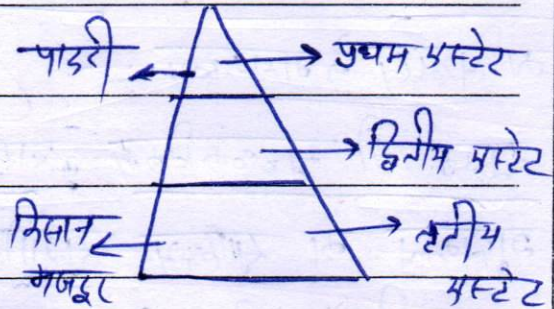 पादरी
प्रथम एस्टेट
द्वितीय एस्टेट
किसान
मजदूर
तृतीय
एस्टेट